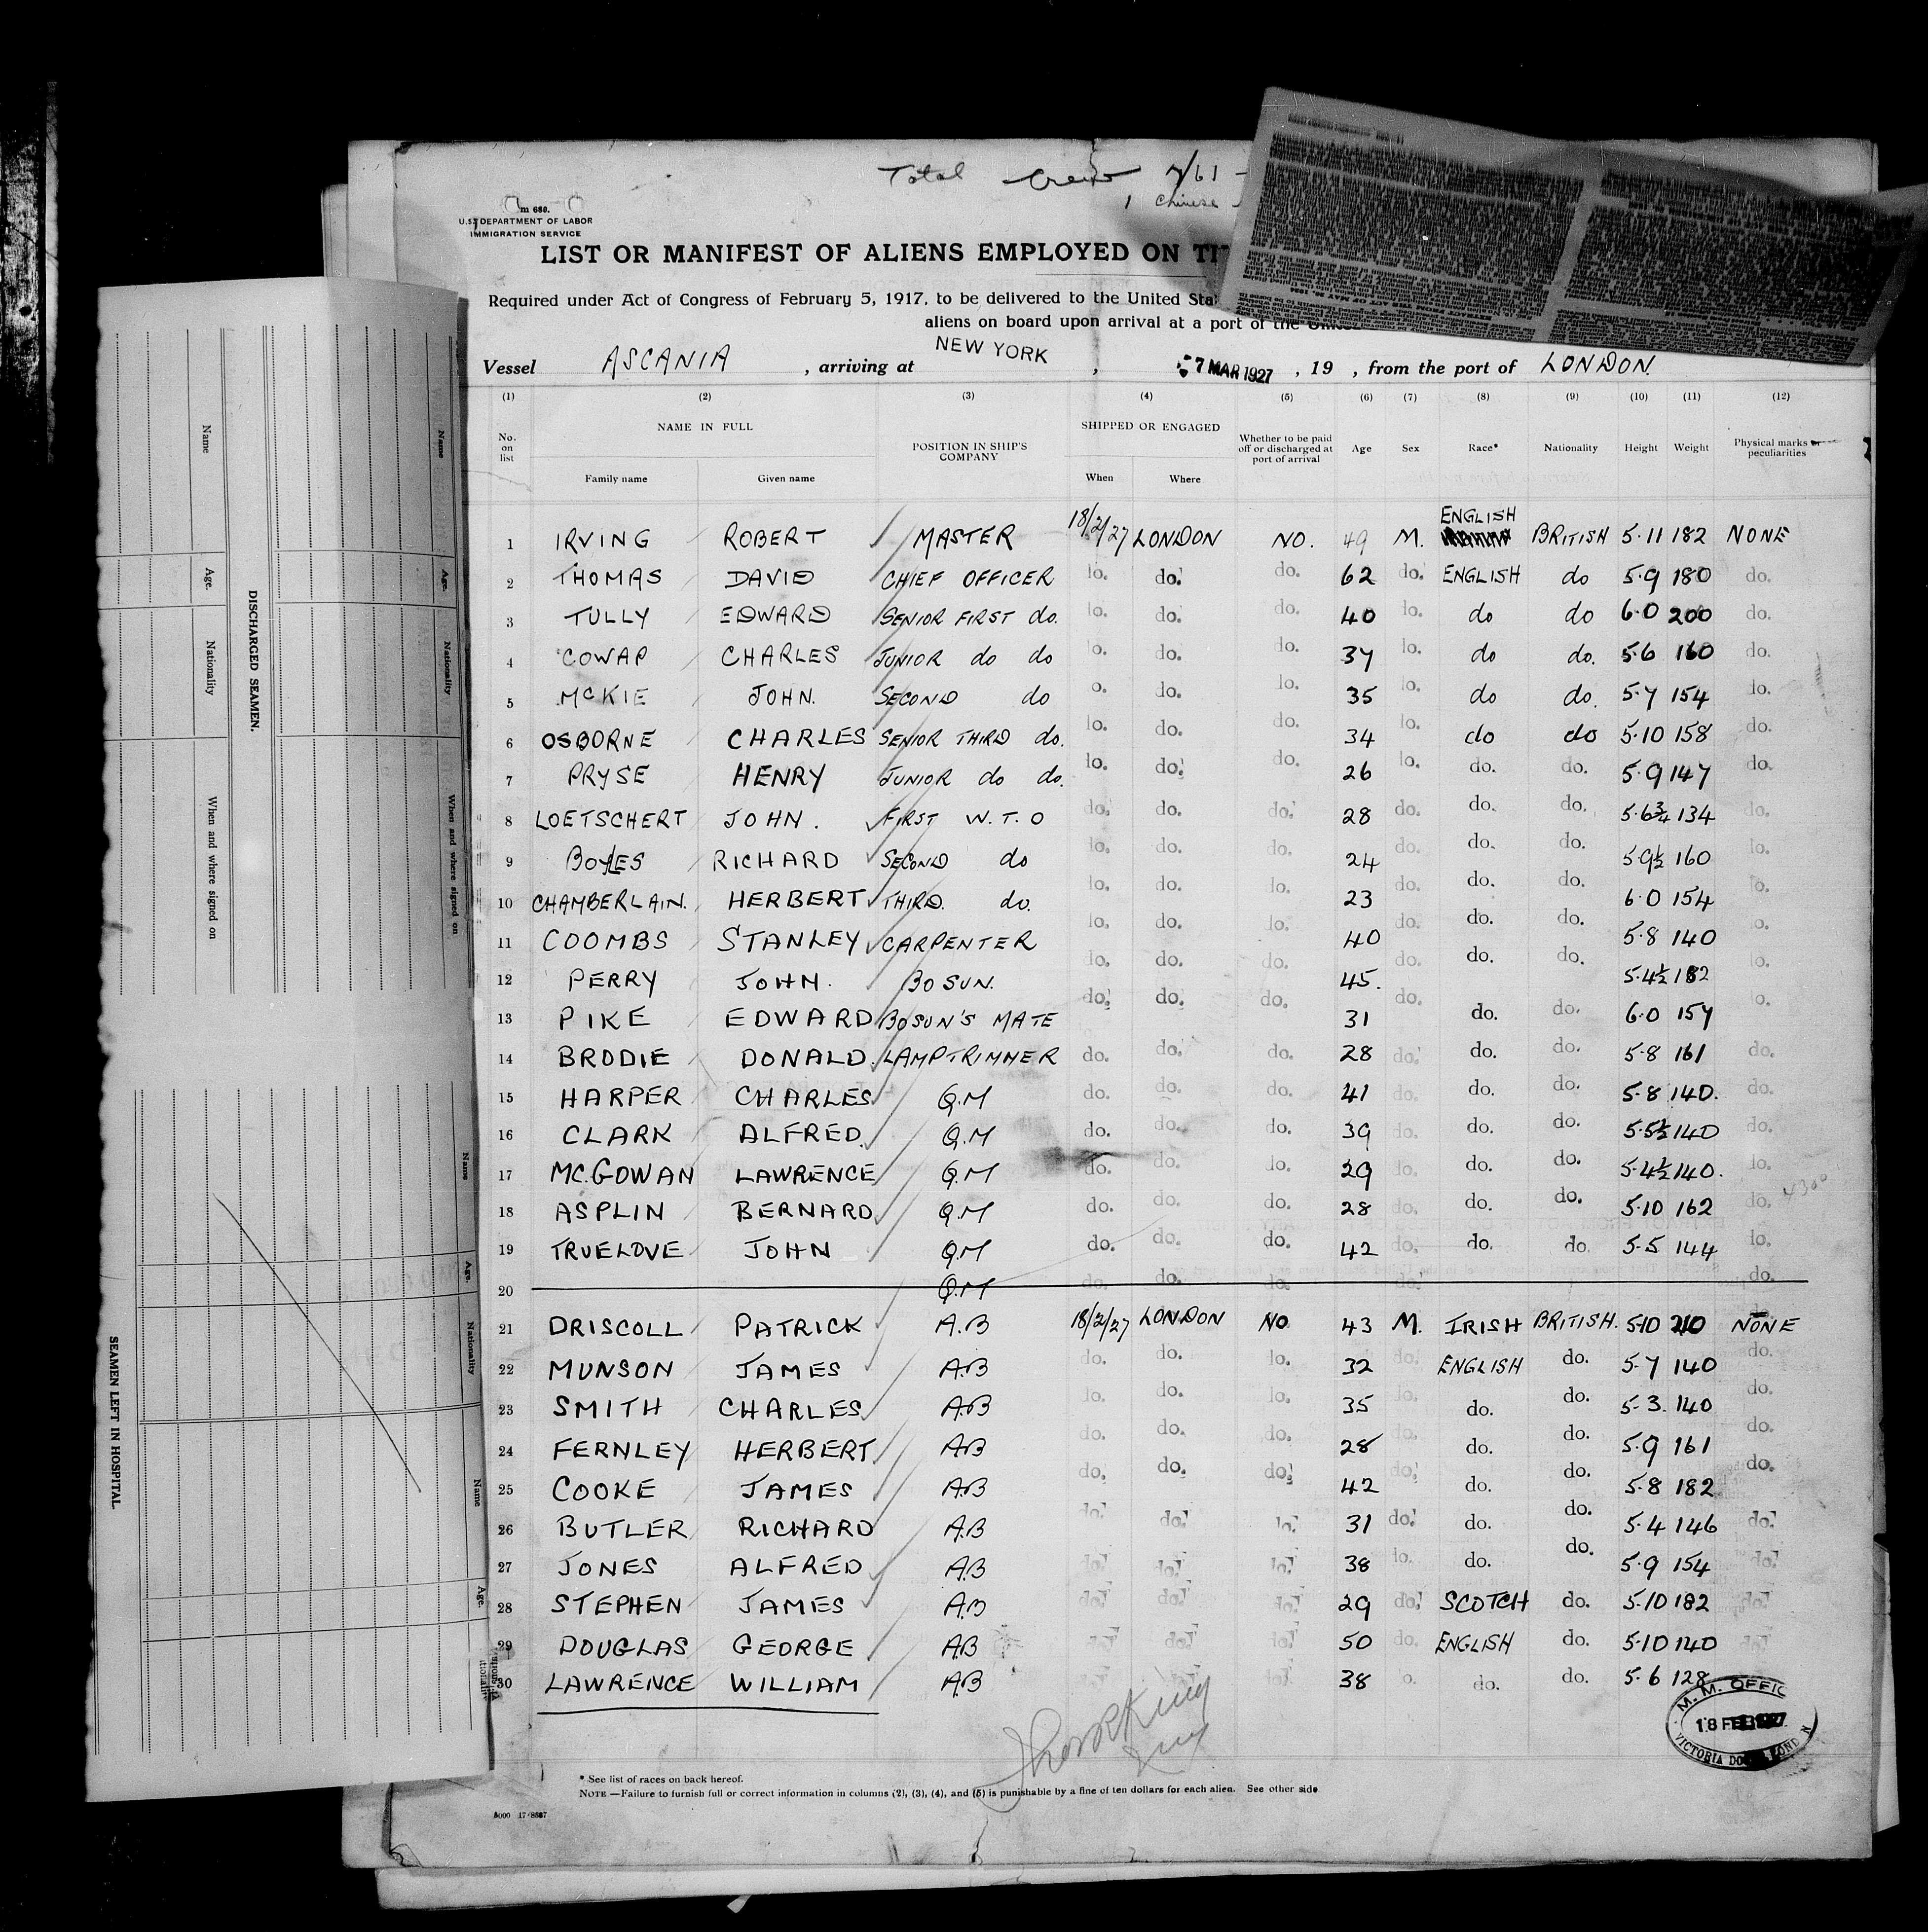 Total Crew
1 Chinese
m 680.
U.S. DEPARTMENT OF LABOR
IMMIGRATION SERVICE
LIST OR MANIFEST OF ALIENS EMPLOYED ON
Required under Act of Congress of February 5, 1917, to be delivered to the United
aliens on board upon arrival at a port of the
Vessel ASCANIA , arriving at NEW YORK , 7 MAR 1927 , 19 , from the port of LONDON.
(1) (2) (3) (4) (5) (6) (7) (8) (9) (10) (11) (12)
No. on list NAME IN FULL POSITION IN SHIP'S COMPANY SHIPPED OR ENGAGED Whether to be paid off or discharged at port of arrival Age Sex Race* Nationality Height Weight Physical marks or peculiarities
Family name Given name When Where
1 IRVING ROBERT MASTER 18/2/27 LONDON NO. 49 M. ENGLISH BRITISH 5·11 182 NONE
2 THOMAS DAVID CHIEF OFFICER do. do. do. 62 do. ENGLISH do 5·9 180 do.
3 TULLY EDWARD SENIOR FIRST do. do. do. do. 40 do. do do 6·0 200 do.
4 COWAP CHARLES JUNIOR do do do. do. do. 37 do. do do. 5·6 160 do.
5 McKIE JOHN. SECOND do do. do. do. 35 do. do do. 5·7 154 do.
6 OSBORNE CHARLES SENIOR THIRD do. do. do. do. 34 do. do do 5·10 158 do.
7 PRYSE HENRY JUNIOR do do. do. do. do. 26 do. do. do. 5·9 147 do.
8 LOETSCHERT JOHN. FIRST W.T.O do. do. do. 28 do. do. do. 5·6¾ 134 do.
9 BOYLES RICHARD SECOND do do. do. do. 24 do. do. do. 5·9½ 160 do.
10 CHAMBERLAIN. HERBERT THIRD. do. do. do. do. 23 do. do. do. 6·0 154 do.
11 COOMBS STANLEY CARPENTER do. do. do. 40 do. do. do. 5·8 140 do.
12 PERRY JOHN. BOSUN. do. do. do. 45. do. do. do. 5·4½ 182 do.
13 PIKE EDWARD BOSUN'S MATE do. do. do. 31 do. do. do. 6·0 157 do.
14 BRODIE DONALD. LAMPTRIMMER do. do. do. 28 do. do. do. 5·8 161 do.
15 HARPER CHARLES Q.M do. do. do. 41 do. do. do. 5·8 140. do.
16 CLARK ALFRED. Q.M do. do. do. 39 do. do. do. 5·5½ 140 do.
17 MC.GOWAN LAWRENCE Q.M do. do. do. 29 do. do. do. 5·4½ 140. do.
18 ASPLIN BERNARD Q.M do. do. do. 28 do. do. do. 5·10 162 do.
19 TRUELOVE JOHN Q.M do. do. do. 42 do. do. do. 5·5 144 do.
20 Q.M do. do. do. do. do.
21 DRISCOLL PATRICK A.B 18/2/27 LONDON NO 43 M. IRISH BRITISH. 5·10 210 NONE
22 MUNSON JAMES A.B do. do. do. 32 do. ENGLISH do. 5·7 140 do.
23 SMITH CHARLES A.B do. do. do. 35 do. do. do. 5·3. 140 do.
24 FERNLEY HERBERT A.B do. do. do. 28 do. do. do. 5·9 161 do.
25 COOKE JAMES A.B do. do. do. 42 do. do. do. 5·8 182 do.
26 BUTLER RICHARD A.B do. do. do. 31 do. do. do. 5·4 146 do.
27 JONES ALFRED A.B do. do. do. 38 do. do. do. 5·9 154 do.
28 STEPHEN JAMES A.B do. do. do. 29 do. SCOTCH do. 5·10 182 do.
29 DOUGLAS GEORGE A.B do. do. do. 50 do. ENGLISH do. 5·10 140 do.
30 LAWRENCE WILLIAM A.B 38 do. do. do. 5·6 128
M. M. OFFIC
18 FEB 1927
VICTORIA DO LOND N
* See list of races on back hereof.
NOTE.—Failure to furnish full or correct information in columns (2), (3), (4), and (5) is punishable by a fine of ten dollars for each alien. See other side
DISCHARGED SEAMEN.
Name Age. Nationality When and where signed on
Name Age. Nationality When and where signed on
SEAMEN LEFT IN HOSPITAL
Name Age. Nationality
Name Age.